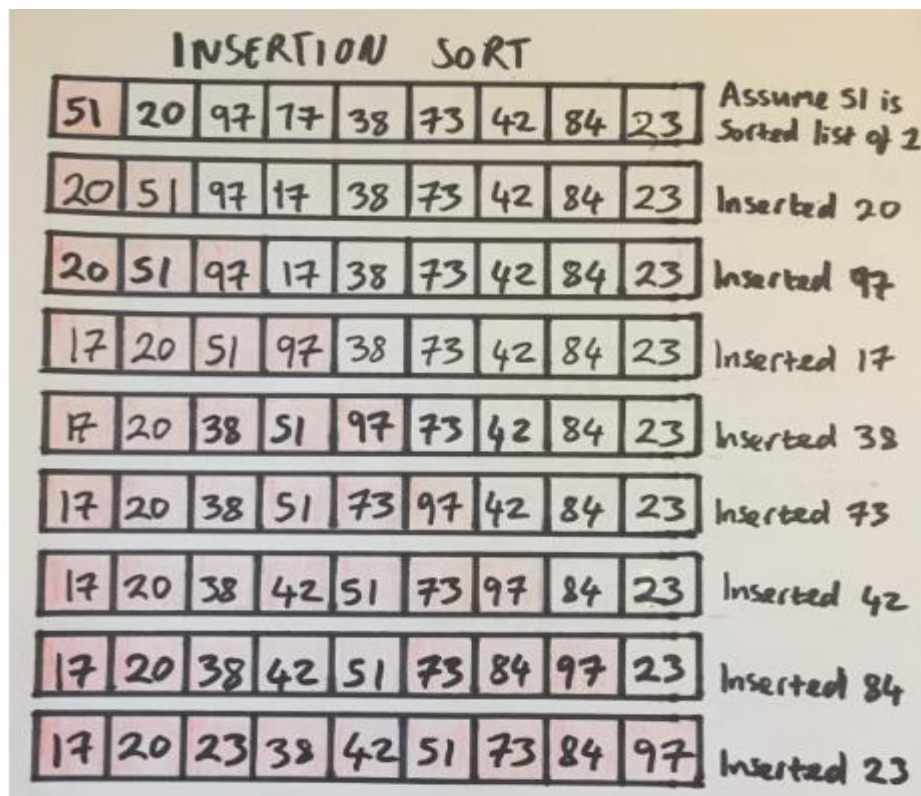 INSERTION SORT
51 20 97 17 38 73 42 84 23 Assume 51 is
Sorted list of 1
20 51 97 17 38 73 42 84 23 Inserted 20
20 51 97 17 38 73 42 84 23 Inserted 97
17 20 51 97 38 73 42 84 23 Inserted 17
17 20 38 51 97 73 42 84 23 Inserted 38
17 20 38 51 73 97 42 84 23 Inserted 73
17 20 38 42 51 73 97 84 23 Inserted 42
17 20 38 42 51 73 84 97 23 Inserted 84
17 20 23 38 42 51 73 84 97 Inserted 23